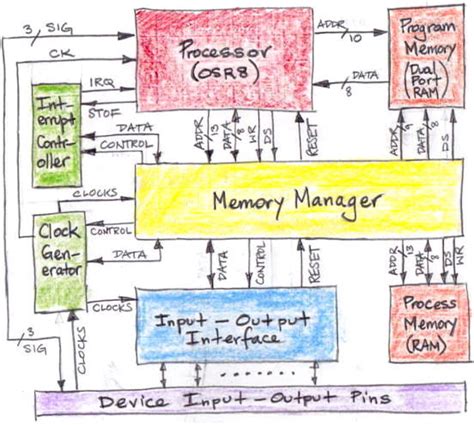 3 SIG
CK
Processor
(OSR8)
ADDR
10
DATA
8
Program
Memory
(Dual
Port
RAM)
IRQ
STOF
Interrupt
Contr-
oller
DATA
CONTROL
ADDR
13
DATA
8
WR
DS
RESET
ADDR
DATA
8
DS
CLOCKS
Memory Manager
Clock
Gen-
erator
CONTROL
DATA
CLOCKS
DATA
CONTROL
RESET
ADDR
13
DATA
8
DS
WR
Input-Output
Interface
Process
Memory
(RAM)
3
SIG
CLOCKS
Device Input-Output Pins